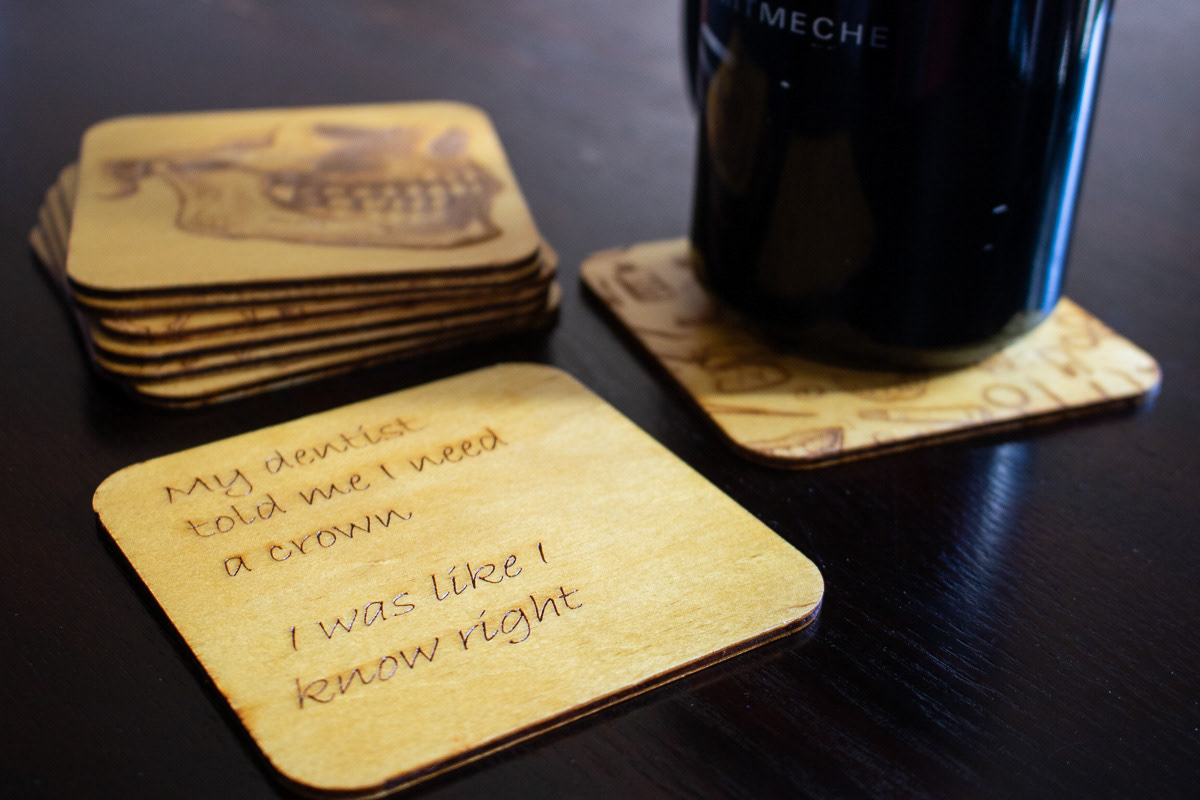 MITMECHE
My dentist
told me I need
a crown
I was like I
know right